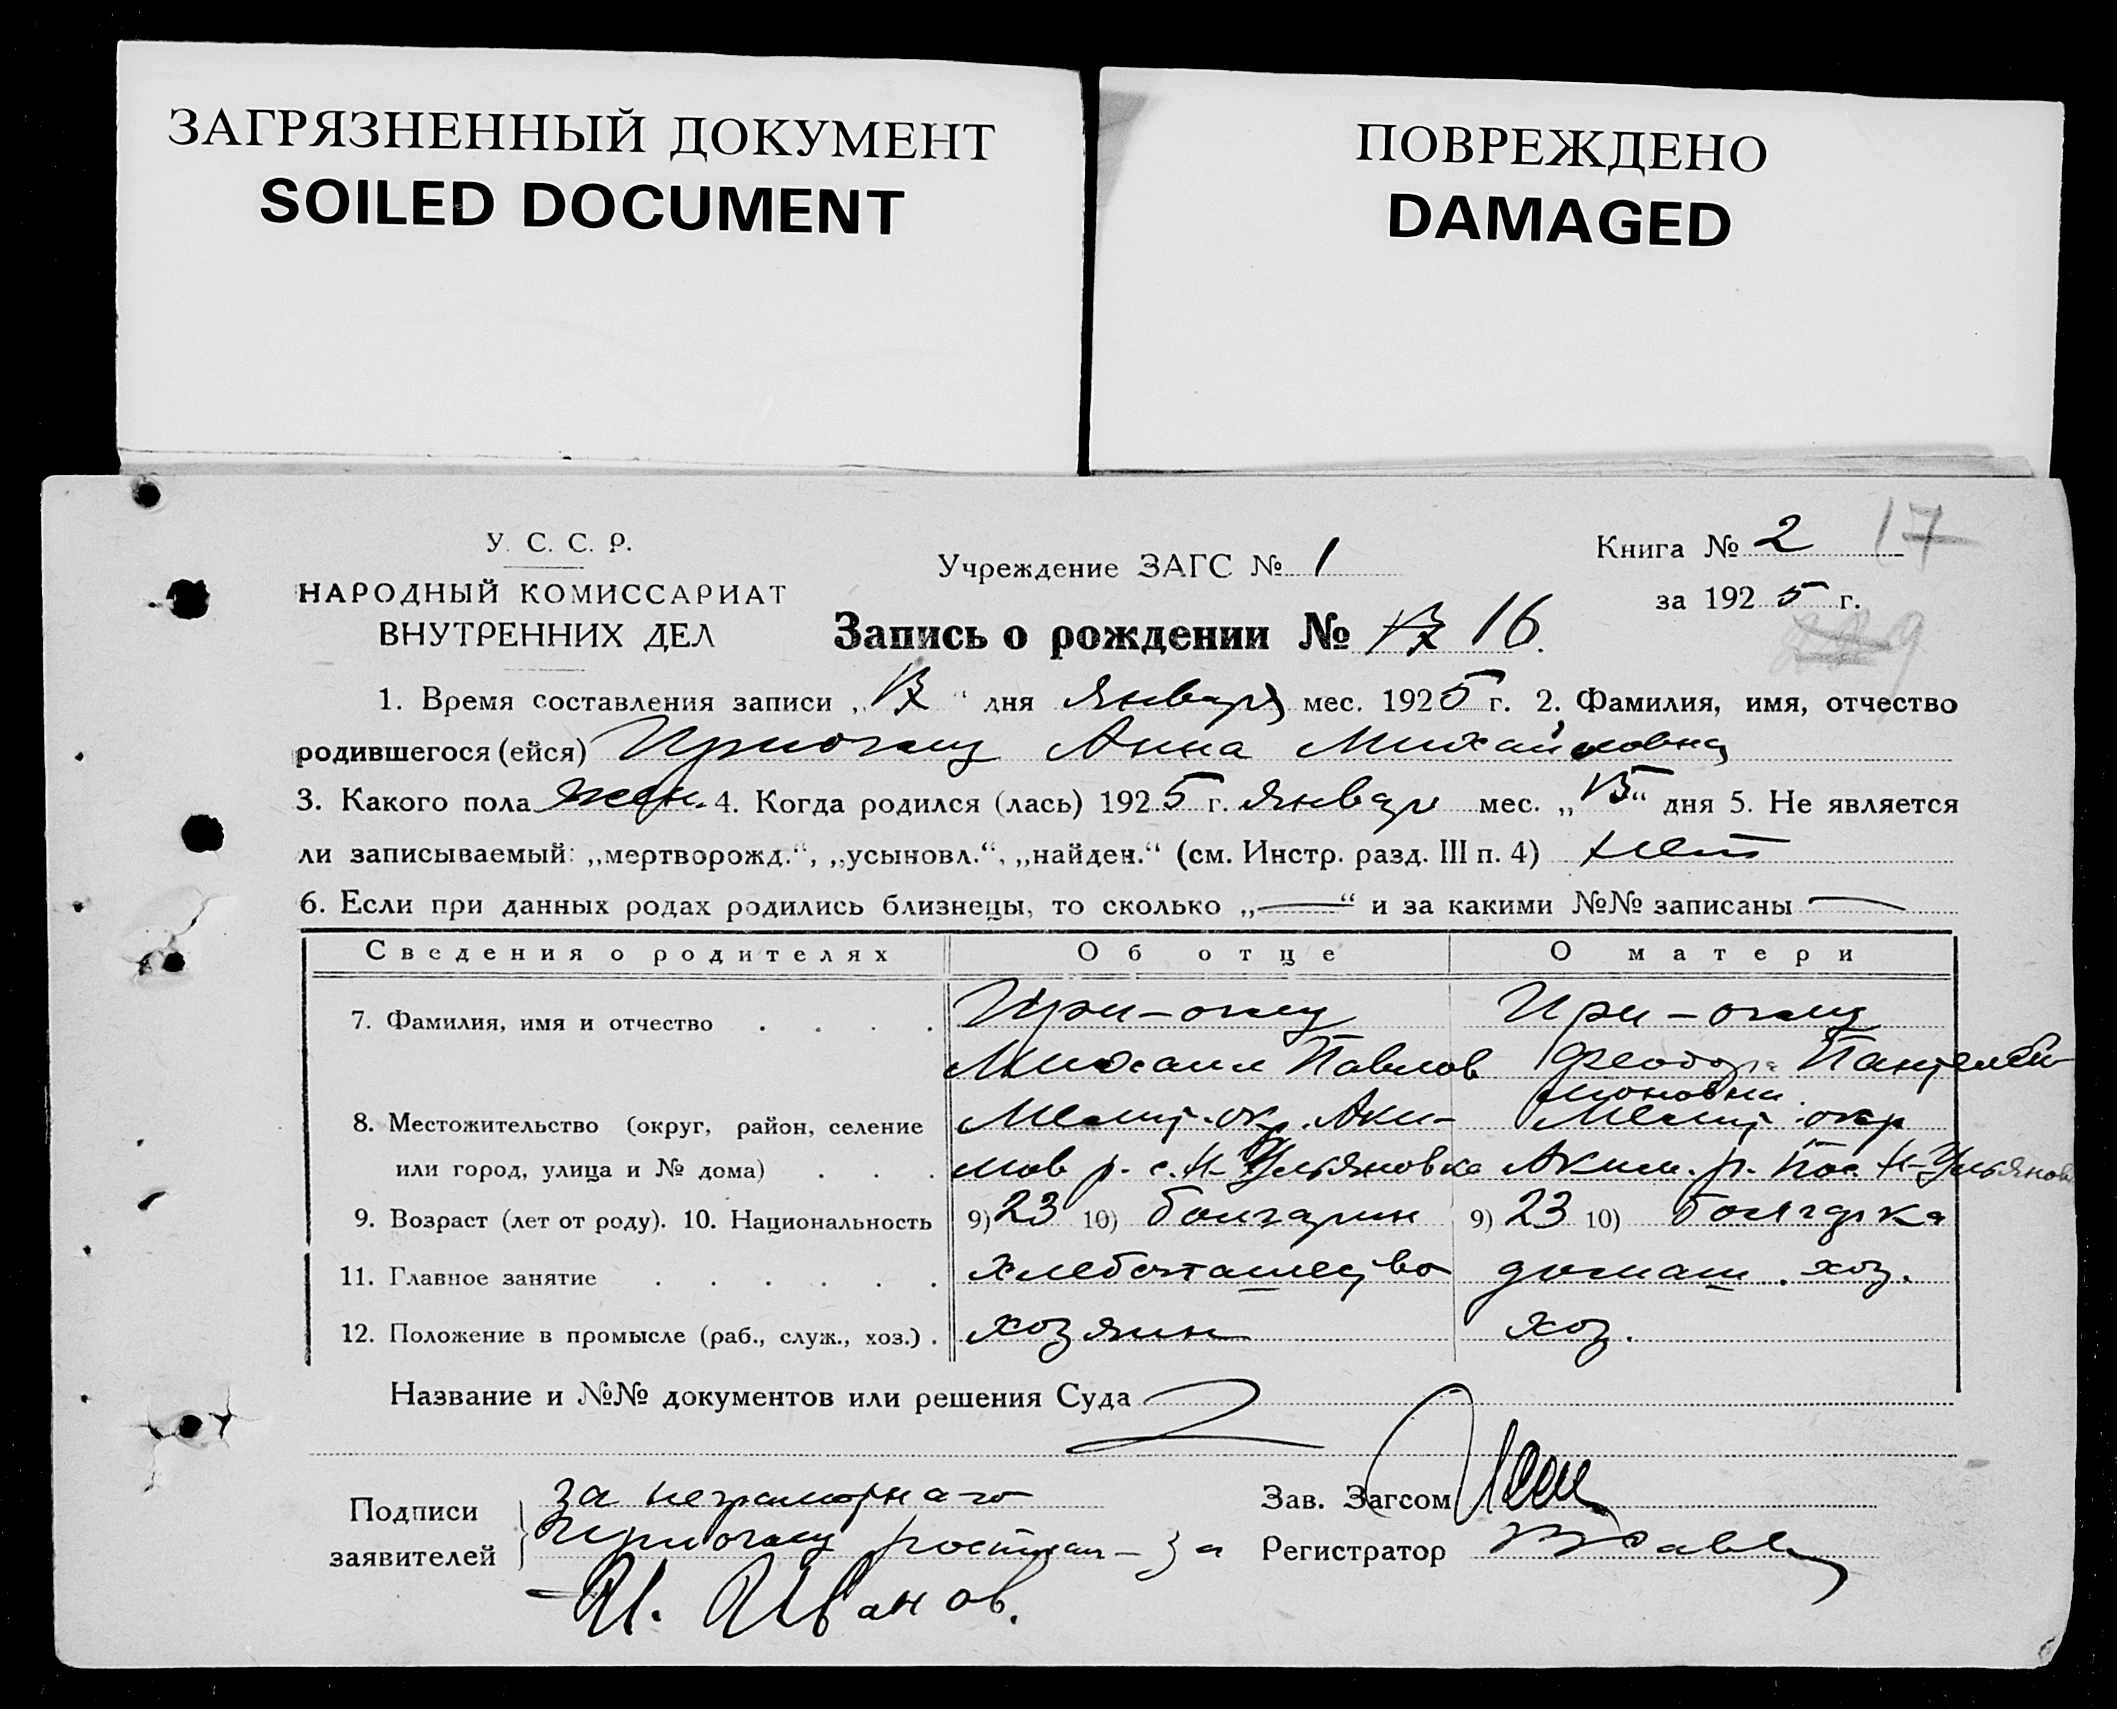 ЗАГРЯЗНЕННЫЙ ДОКУМЕНТ
SOILED DOCUMENT
ПОВРЕЖДЕНО
DAMAGED
У. С. С. Р.
НАРОДНЫЙ КОМИССАРИАТ
ВНУТРЕННИХ ДЕЛ
Учреждение ЗАГС № 1
Книга № 2 17
за 1925 г.
Запись о рождении № 16.
1. Время составления записи „ “ дня января мес. 1925 г. 2. Фамилия, имя, отчество
родившегося (ейся) Анна Михайловна
3. Какого пола жен. 4. Когда родился (лась) 1925 г. январе мес. „15“ дня 5. Не является
ли записываемый: „мертворожд.“, „усыновл.“, „найден.“ (см. Инстр. разд. III п. 4) нет
6. Если при данных родах родились близнецы, то сколько „—“ и за какими №№ записаны —
Сведения о родителях Об отце О матери
7. Фамилия, имя и отчество
Михаил Павлов Феодора
8. Местожительство (округ, район, селение Мелит. окр. Аки- Мелит. окр
или город, улица и № дома) мов р. с. Н-Ульяновка Аким. р. Н-Ульянов
9. Возраст (лет от роду). 10. Национальность 9) 23 10) болгарин 9) 23 10) болгарка
11. Главное занятие хлебопашество домаш. хоз.
12. Положение в промысле (раб., служ., хоз.) хозяин хоз.
Название и №№ документов или решения Суда
Подписи заявителей за неграмотнаго
И. Иванов.
Зав. Загсом
Регистратор